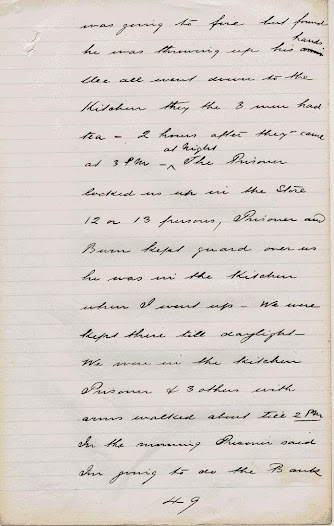 was going to fire but found
he was throwing up his hands
We all went down to the
Kitchen they the 3 men had
tea – 2 hours after they came
at 3 PM – at Night The Prisoner
locked us up in the Store
12 or 13 persons, Prisoner and
Burn kept guard over us
he was in the Kitchen
when I went up – We were
kept there till daylight –
We were in the kitchen
Prisoner & 3 others with
arms walked about till 2 PM
In the morning Prisoner said
Im going to do the Bank
49